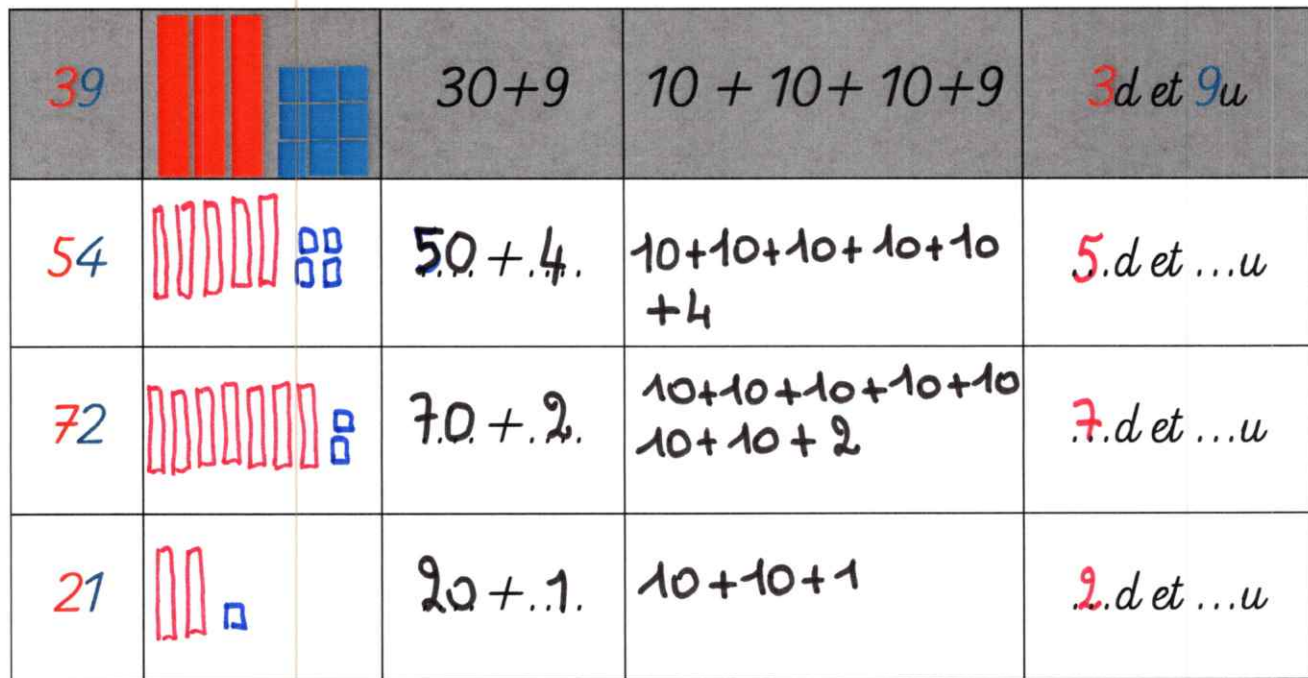 39 30+9 10 + 10 + 10+9 3d et 9u
54 50 + .4. 10+10+10+10+10 5.d et ...u
+4
72 70 + .2. 10+10+10+10+10 .7.d et ...u
10+10+2
21 20 + ..1. 10+10+1 .2.d et ...u